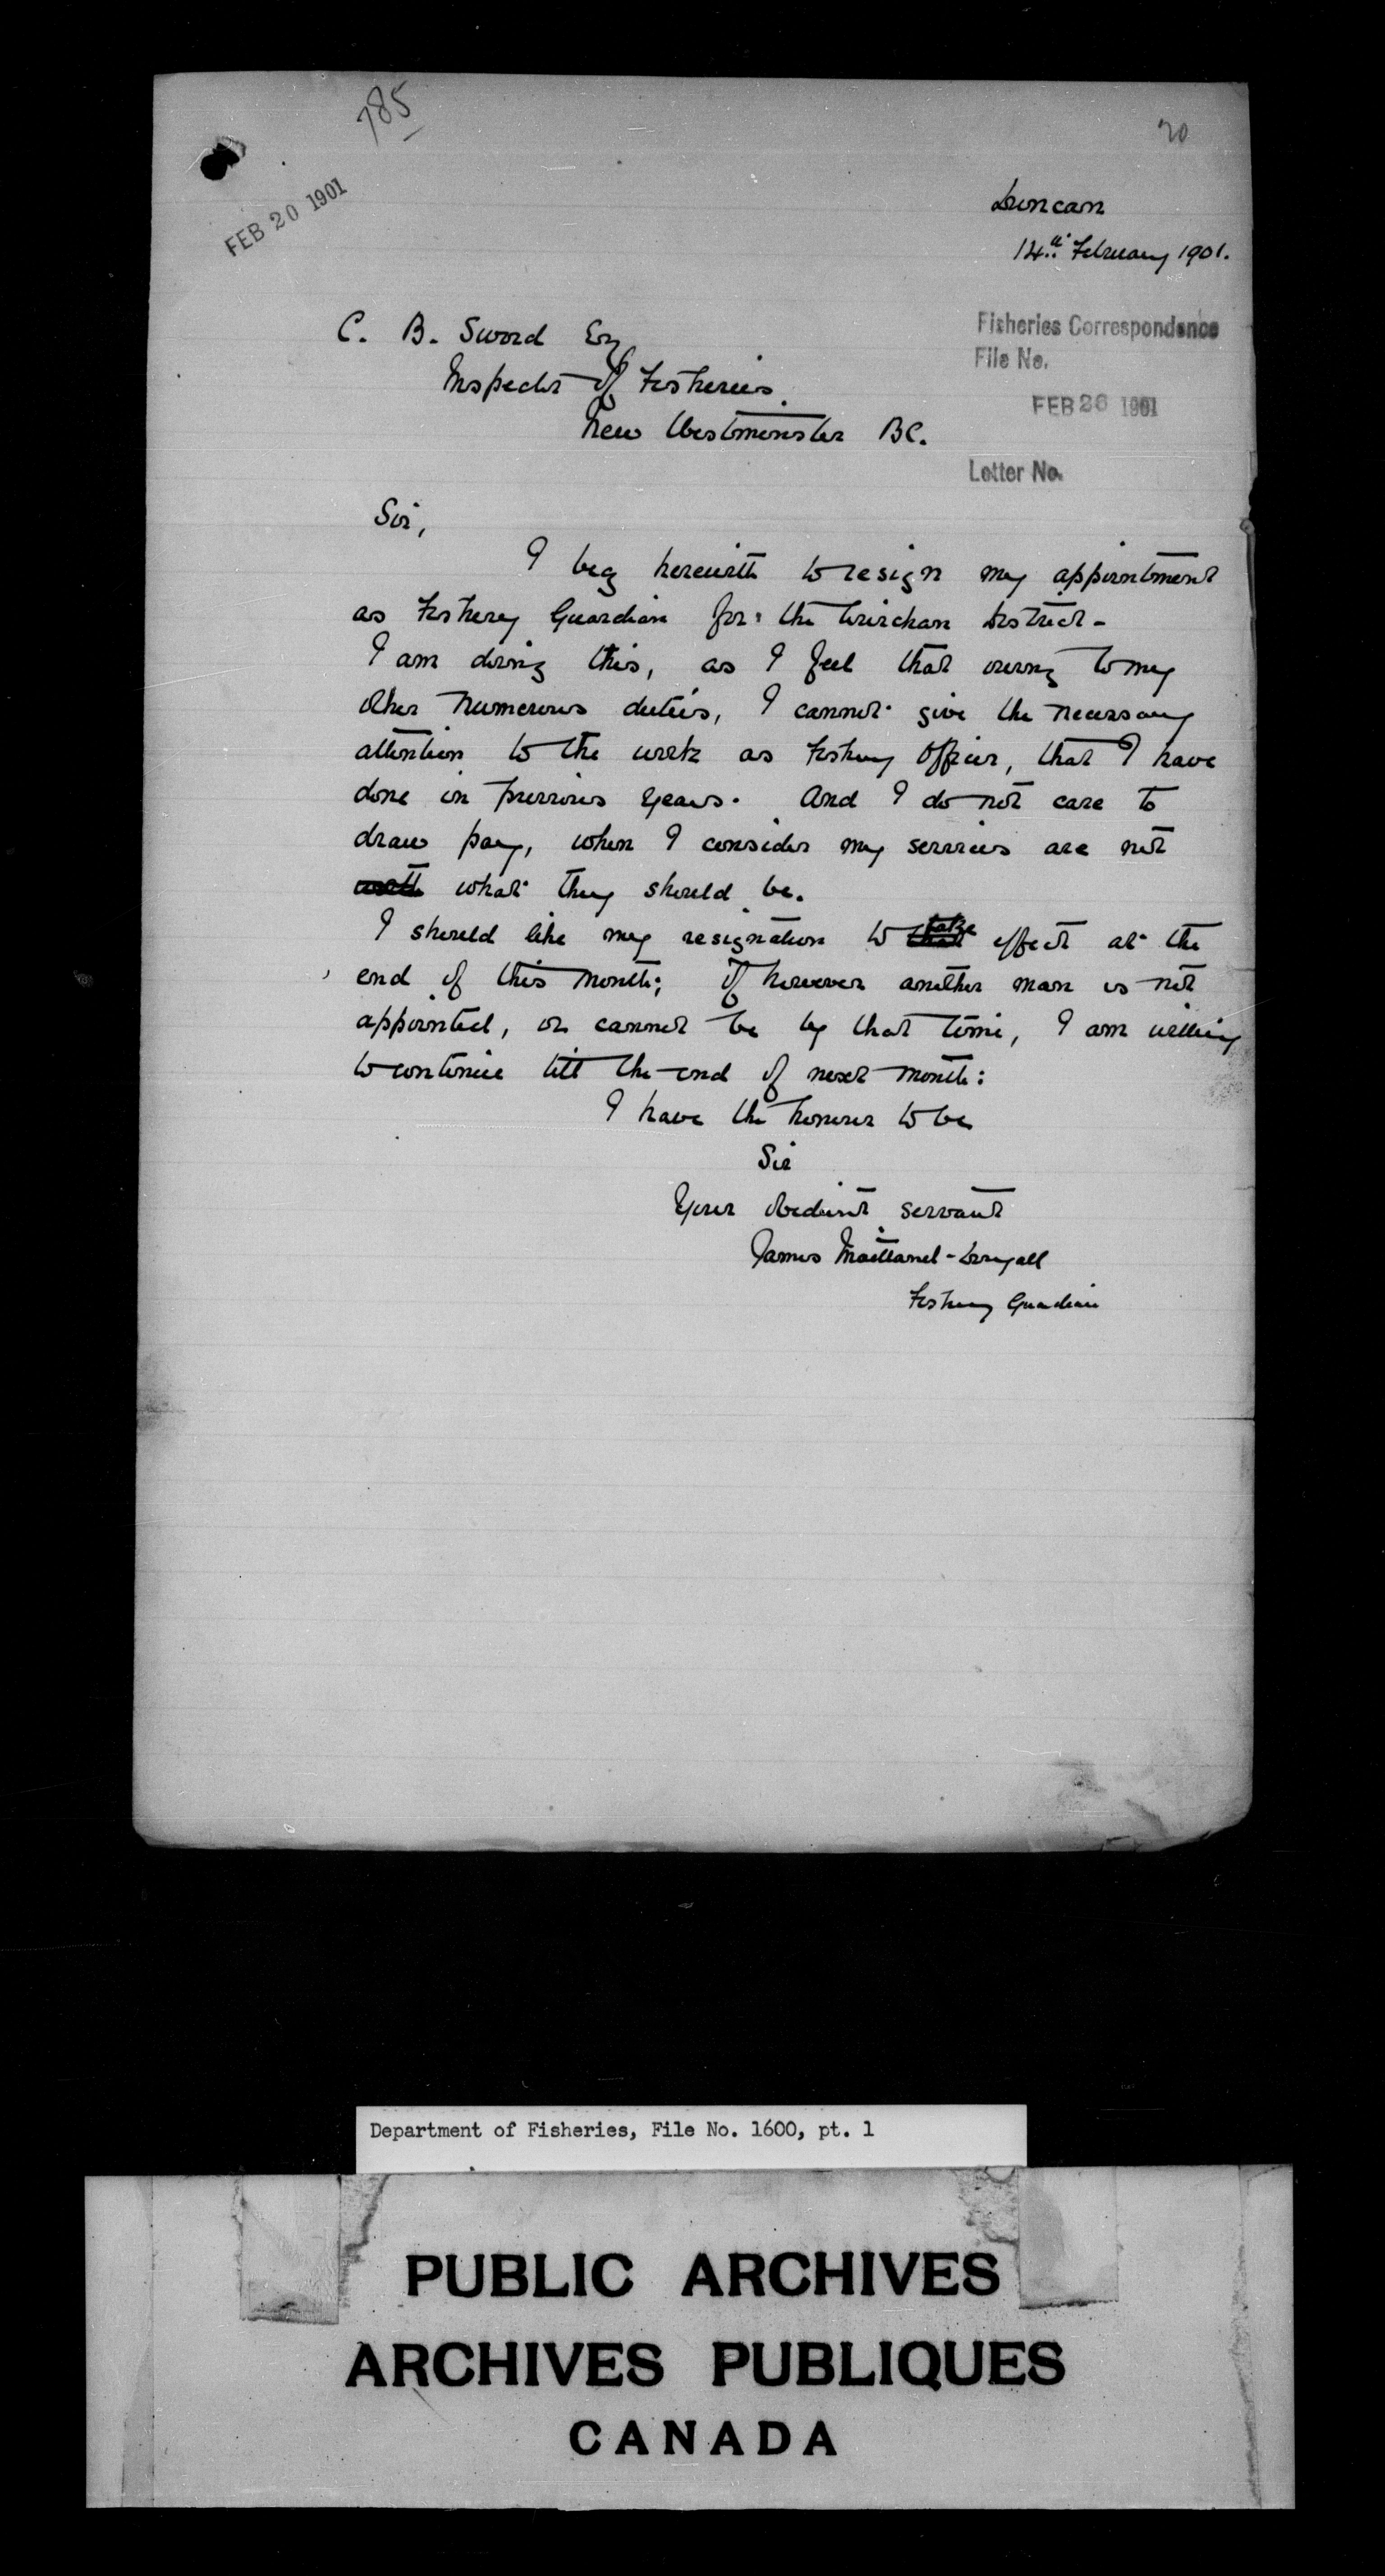 785
20
FEB 20 1901
Duncan
14th February 1901.
Fisheries Correspondence
File No.
FEB 26 1901
Letter No.
C. B. Sword Esq
Inspector of Fisheries.
New Westminster BC.
Sir,
I beg herewith to resign my appointment
as Fishery Guardian for the Cowichan District -
I am doing this, as I feel that owing to my
other numerous duties, I cannot give the necessary
attention to the work as Fishery Officer, that I have
done in previous years. And I do not care to
draw pay, when I consider my services are not
worth what they should be.
I should like my resignation to that take effect at the
end of this month; If however another man is not
appointed, or cannot be by that time, I am willing
to continue till the end of next month:
I have the honour to be
Sir
Your obedient servant
James Maitland-Dougall
Fishery Guardian
Department of Fisheries, File No. 1600, pt. 1
PUBLIC ARCHIVES
ARCHIVES PUBLIQUES
CANADA